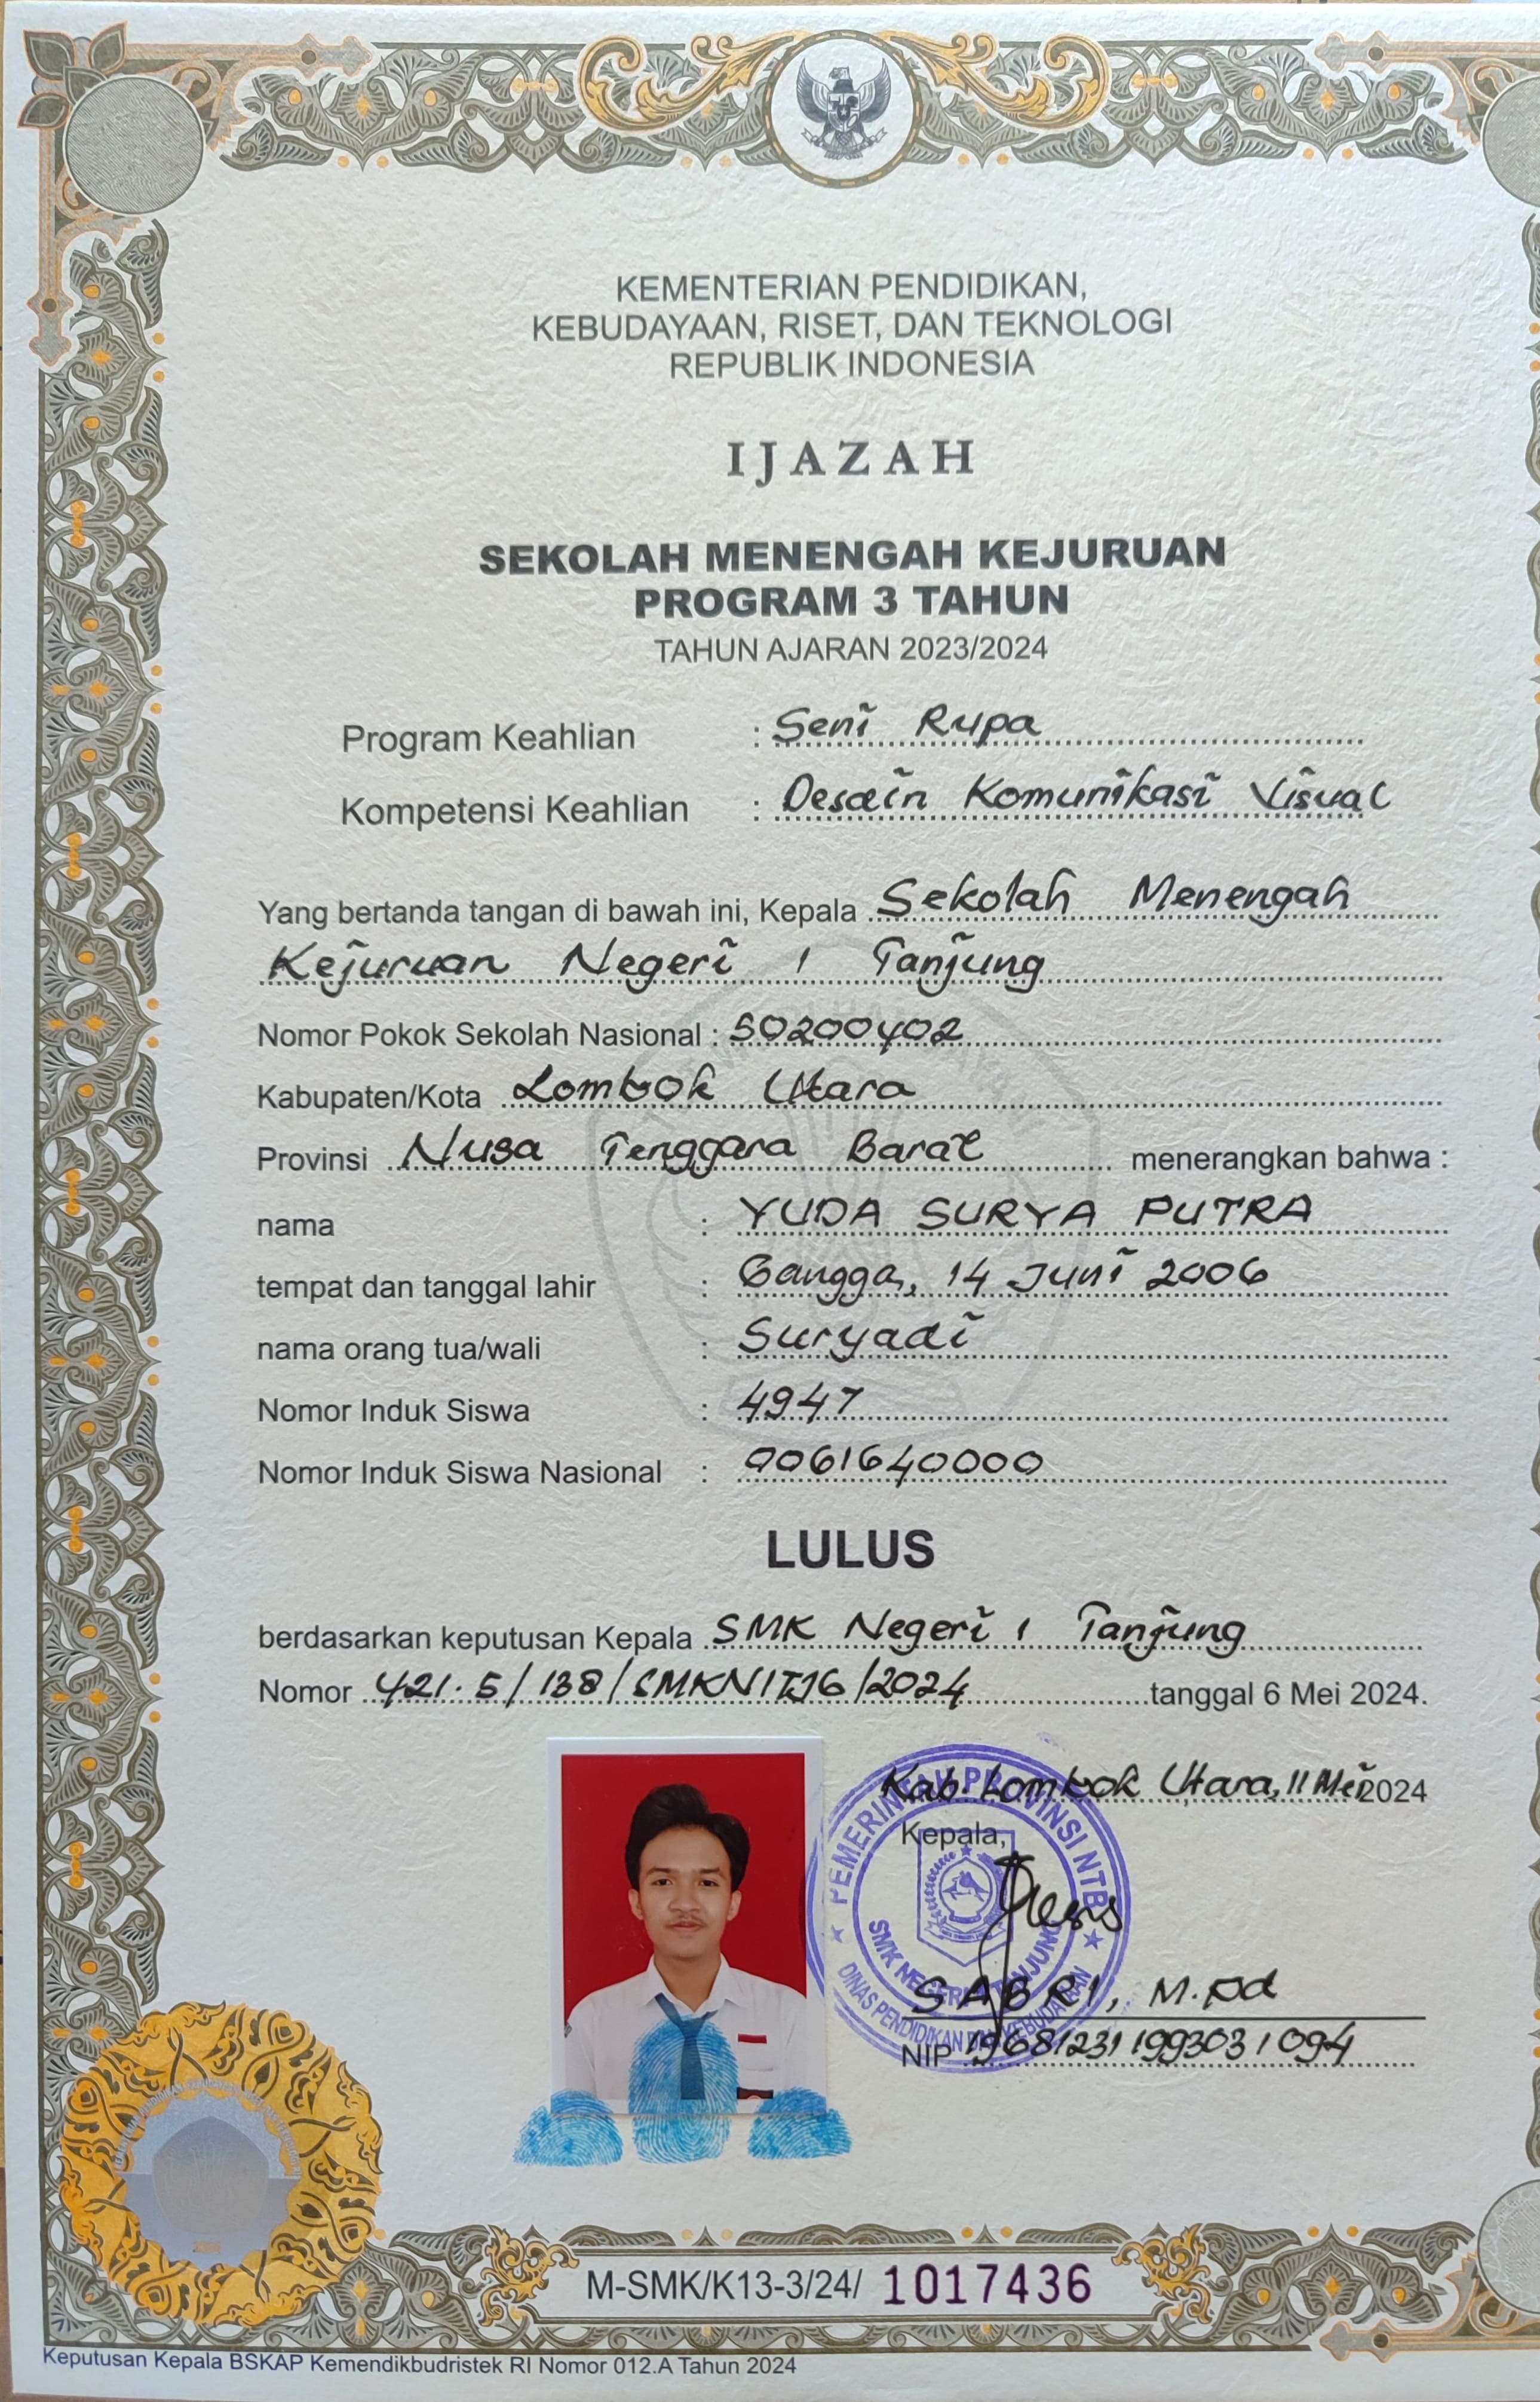 KEMENTERIAN PENDIDIKAN,
KEBUDAYAAN, RISET, DAN TEKNOLOGI
REPUBLIK INDONESIA
IJAZAH
SEKOLAH MENENGAH KEJURUAN
PROGRAM 3 TAHUN
TAHUN AJARAN 2023/2024
Program Keahlian : Seni Rupa
Kompetensi Keahlian : Desain Komunikasi Visual
Yang bertanda tangan di bawah ini, Kepala Sekolah Menengah
Kejuruan Negeri 1 Tanjung
Nomor Pokok Sekolah Nasional : 50200402
Kabupaten/Kota Lombok Utara
Provinsi Nusa Tenggara Barat menerangkan bahwa :
nama : YUDA SURYA PUTRA
tempat dan tanggal lahir : Gangga, 14 Juni 2006
nama orang tua/wali : Suryadi
Nomor Induk Siswa : 4947
Nomor Induk Siswa Nasional : 0061640000
LULUS
berdasarkan keputusan Kepala SMK Negeri 1 Tanjung
Nomor 421.5/138/ /2024 tanggal 6 Mei 2024.
Kab. Lombok Utara, 11 Mei 2024
Kepala,
PEMERINTAH PROVINSI NTB
SMK NEGERI 1 TANJUNG
DINAS PENDIDIKAN DAN KEBUDAYAAN
SABRI, M.Pd
NIP 196812311993031094
M-SMK/K13-3/24/ 1017436
Keputusan Kepala BSKAP Kemendikbudristek RI Nomor 012.A Tahun 2024